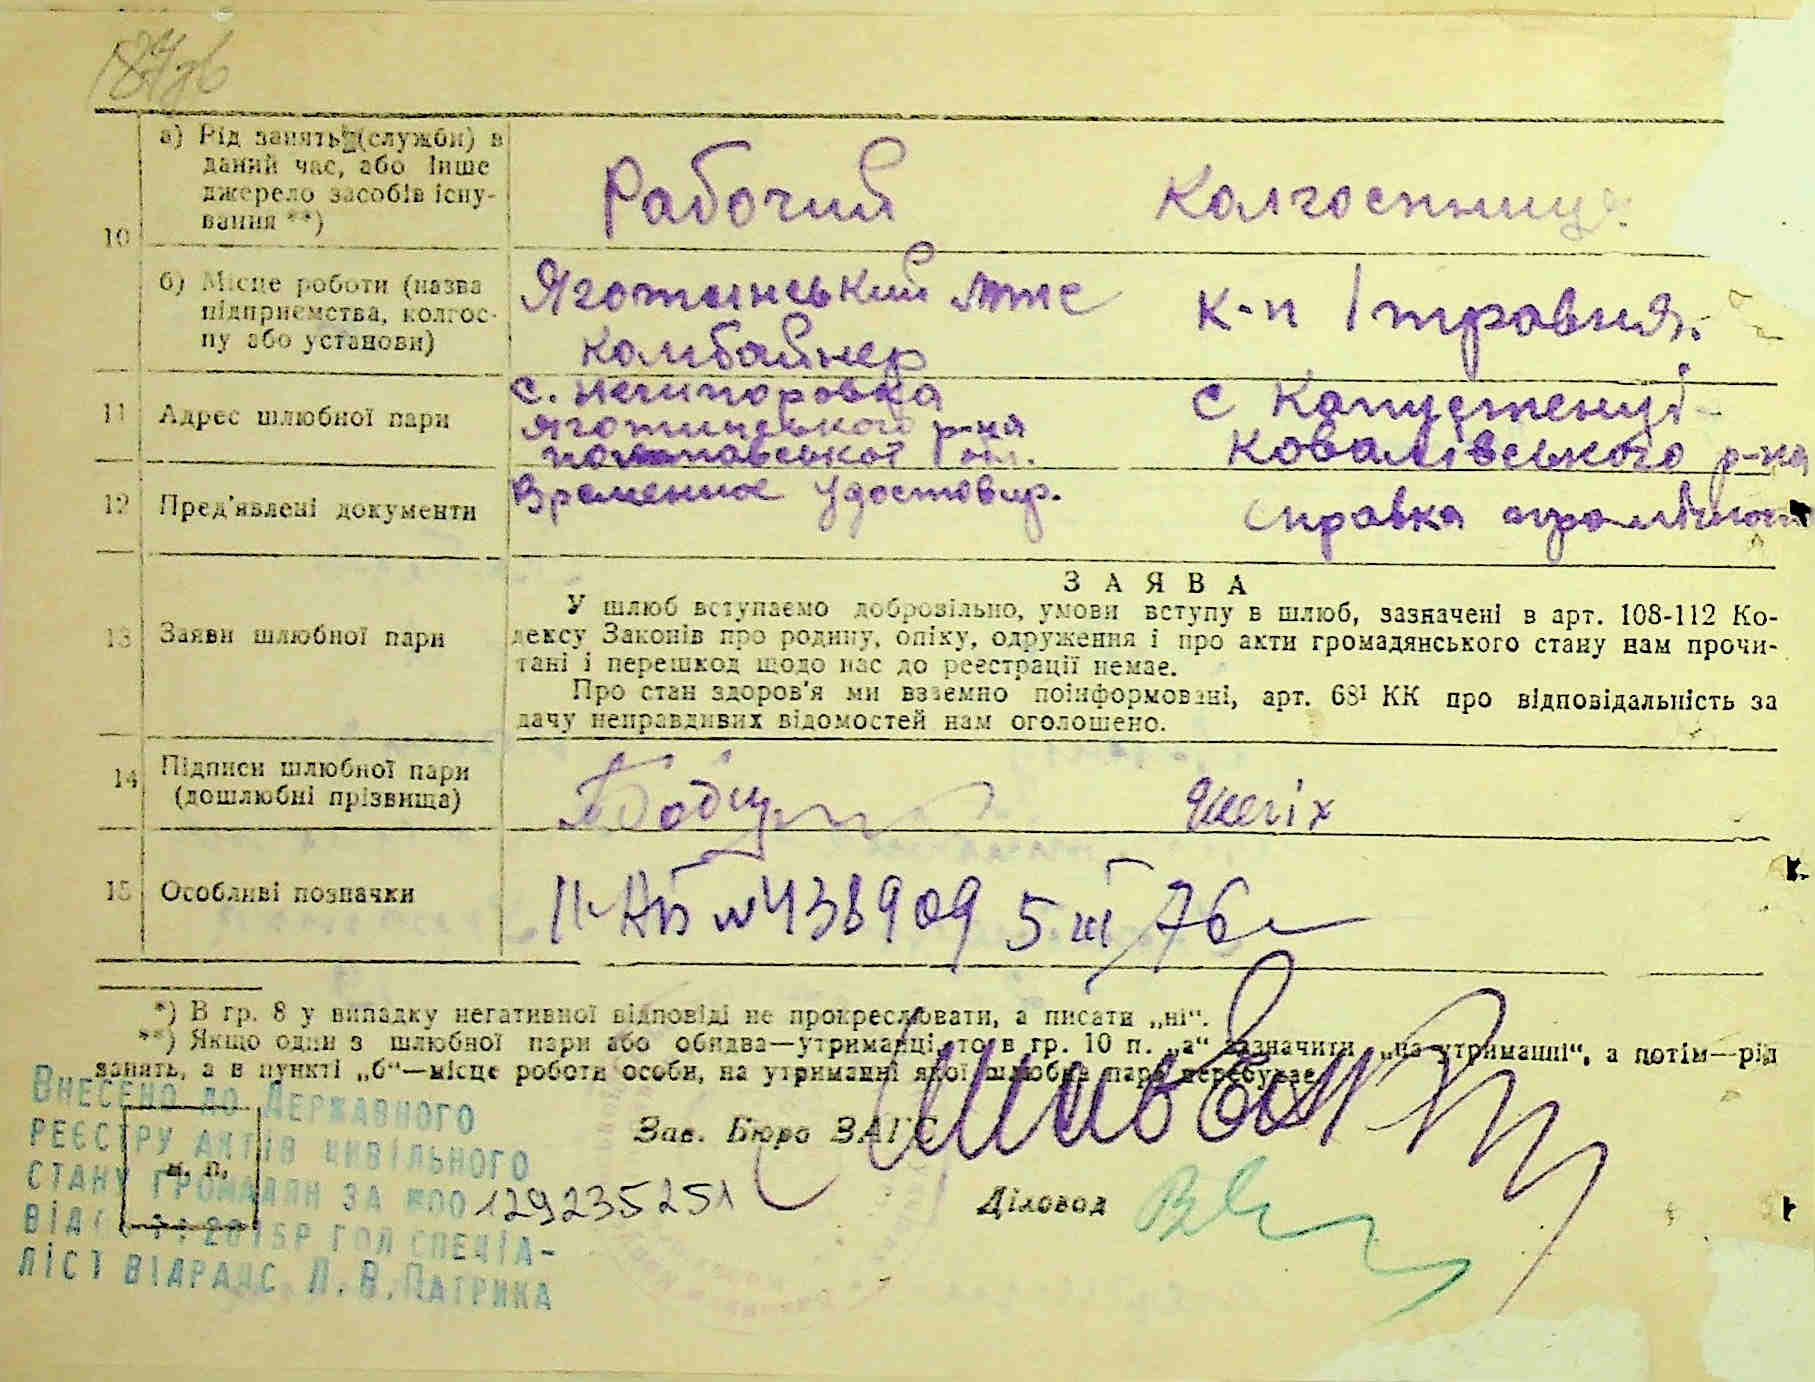 10 а) Рід занять (служби) в даний час, або інше джерело засобів існування **)
Рабочий
Колгоспниця
б) Місце роботи (назва підприємства, колгоспу або установи)
Яготинський мтс
комбайнер
к-п 1 травня.
11 Адрес шлюбної пари
с. Нечипоровка
Яготинського р-на
Полтавської обл.
с Капустенці
Ковалівського р-на
12 Пред'явлені документи
Временное удостовир.
Справка
13 Заяви шлюбної пари
ЗАЯВА
У шлюб вступаємо добровільно, умови вступу в шлюб, зазначені в арт. 108-112 Ко-
дексу Законів про родину, опіку, одруження і про акти громадянського стану нам прочи-
тані і перешкод щодо нас до реєстрації немає.
Про стан здоров'я ми взаємно поінформовані, арт. 68¹ КК про відповідальність за
дачу неправдивих відомостей нам оголошено.
14 Підписи шлюбної пари
(дошлюбні прізвища)
15 Особливі позначки
№ 438909 5 III 76
*) В гр. 8 у випадку негативної відповіді не прокреслювати, а писати „ні“.
**) Якщо один з шлюбної пари або обидва—утриманці, то в гр. 10 п. „а“ зазначити „на утриманні“, а потім—рід
занять, а в пункті „б“—місце роботи особи, на утриманні якої шлюбна пара перебуває.
Зав. Бюро ЗАГС
Діловод
м. п.
Внесено до Державного
реєстру актів цивільного
стану громадян за №00129235251
від 2015р гол спеціа-
ліст відрацс Л.В.Патрика